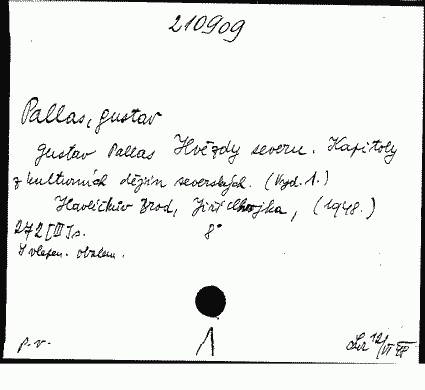 210909
Pallas, Gustav
Gustav Pallas Hvězdy severu. Kapitoly
z kulturních dějin severských. (Vyd. 1.)
Havlíčkův Brod, Jiří Chvojka, (1948.)
272 [III] s. 8°
S vlepen. obalem.
p. v. 1 12/VI